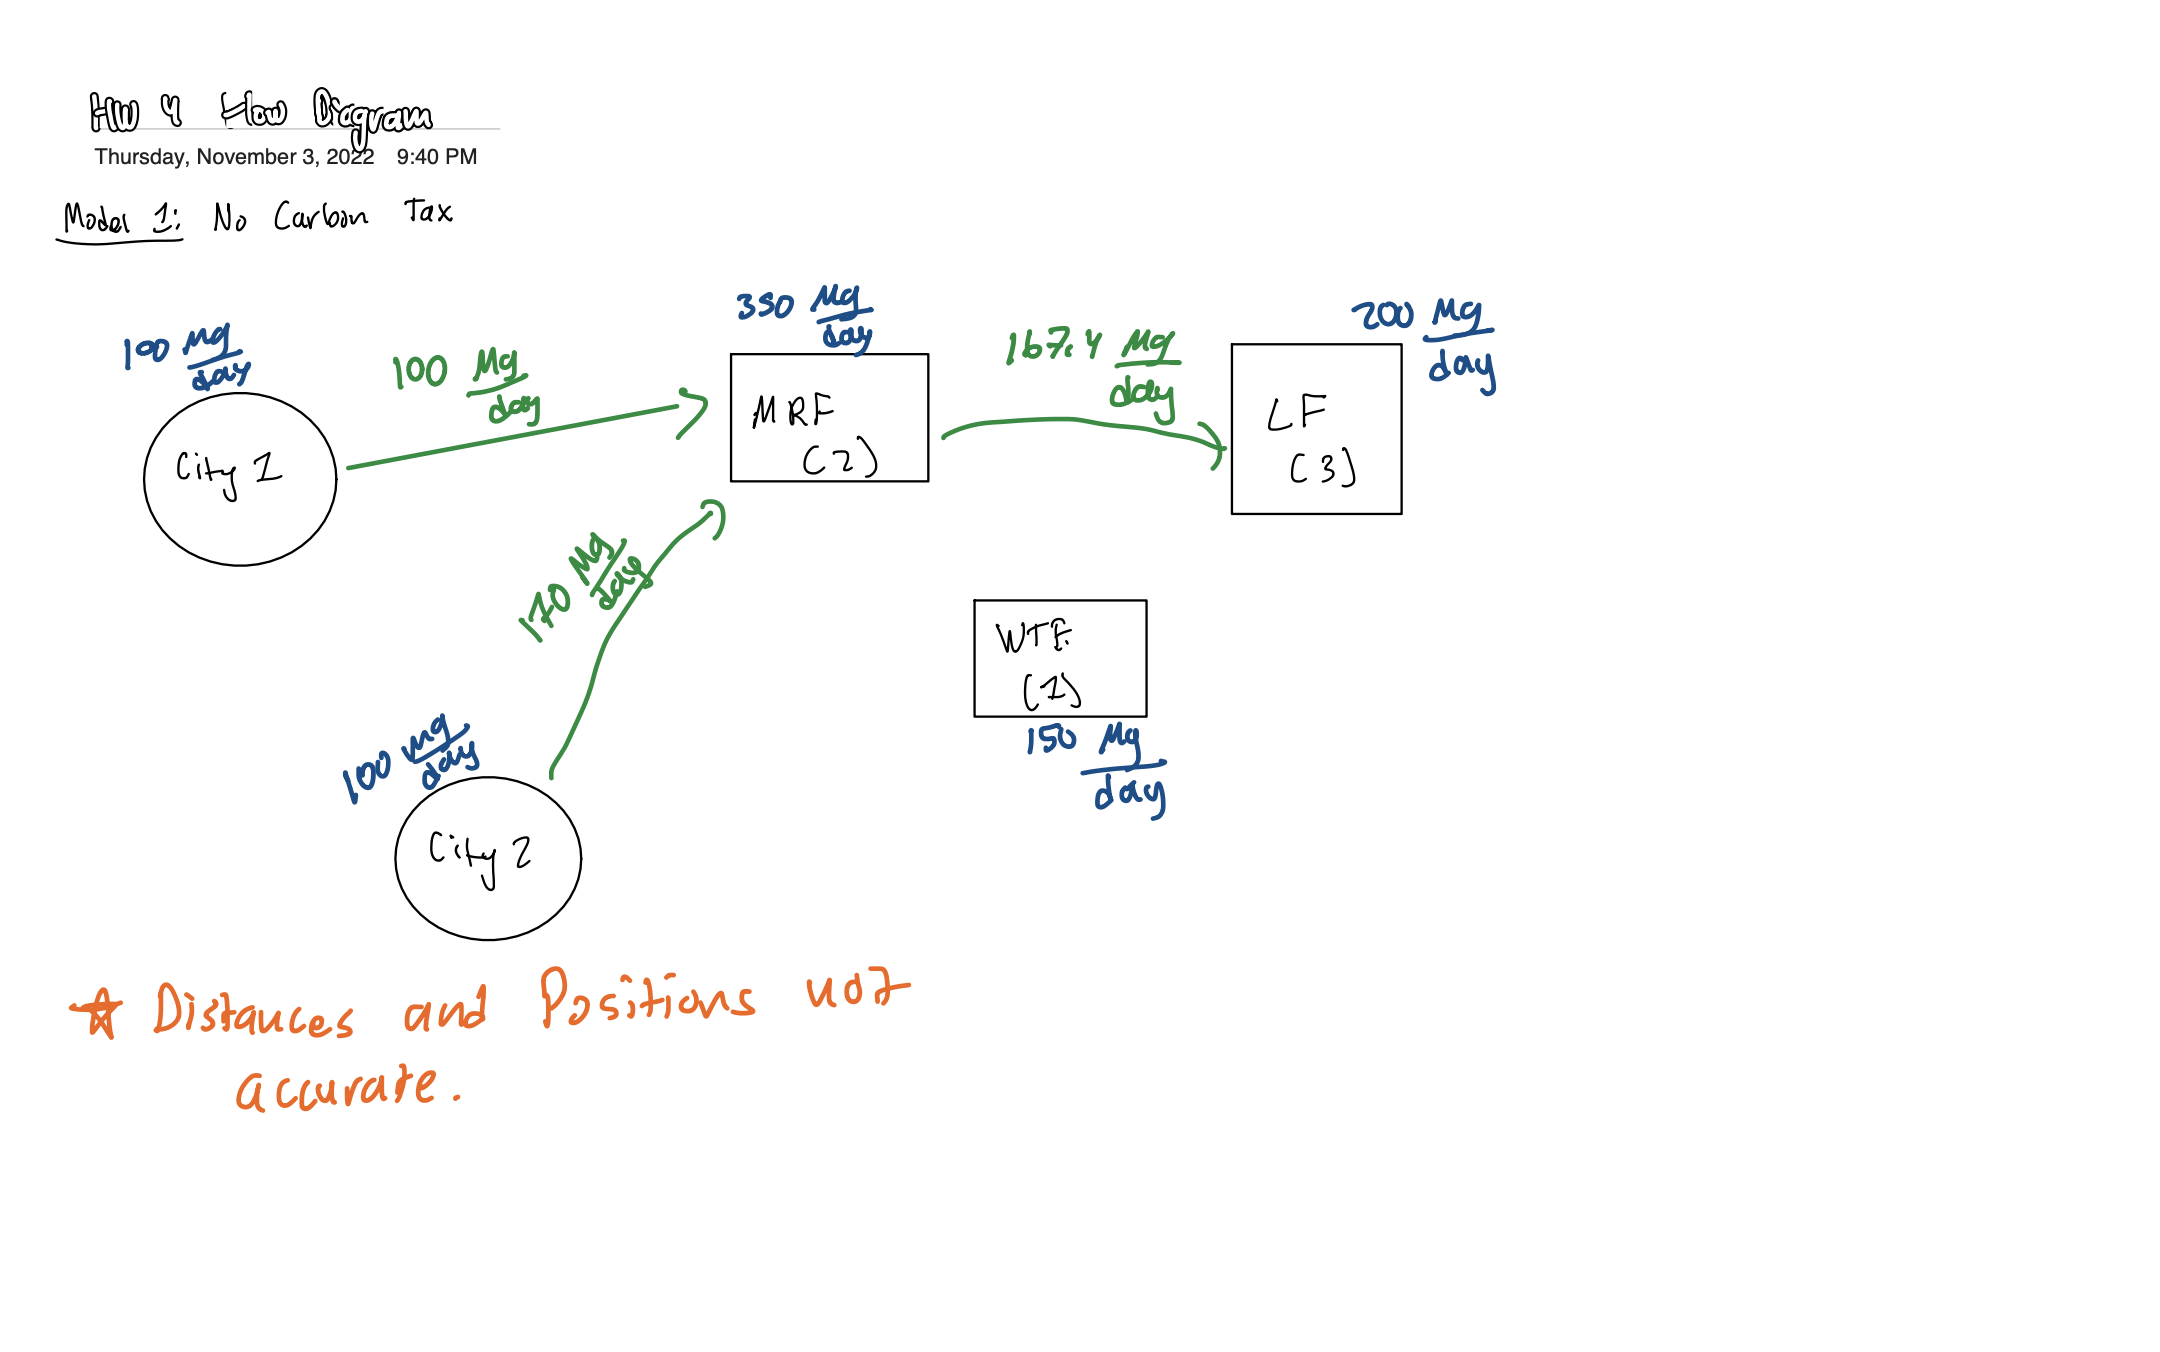 HW 4 Flow Diagram
Thursday, November 3, 2022 9:40 PM
Model 1: No Carbon Tax
100 Mg/day
100 Mg/day
350 Mg/day
167.4 Mg/day
200 Mg/day
City 1
MRF
(2)
LF
(3)
170 Mg/day
WTE
(1)
150 Mg/day
100 Mg/day
City 2
Distances and Positions not
accurate.